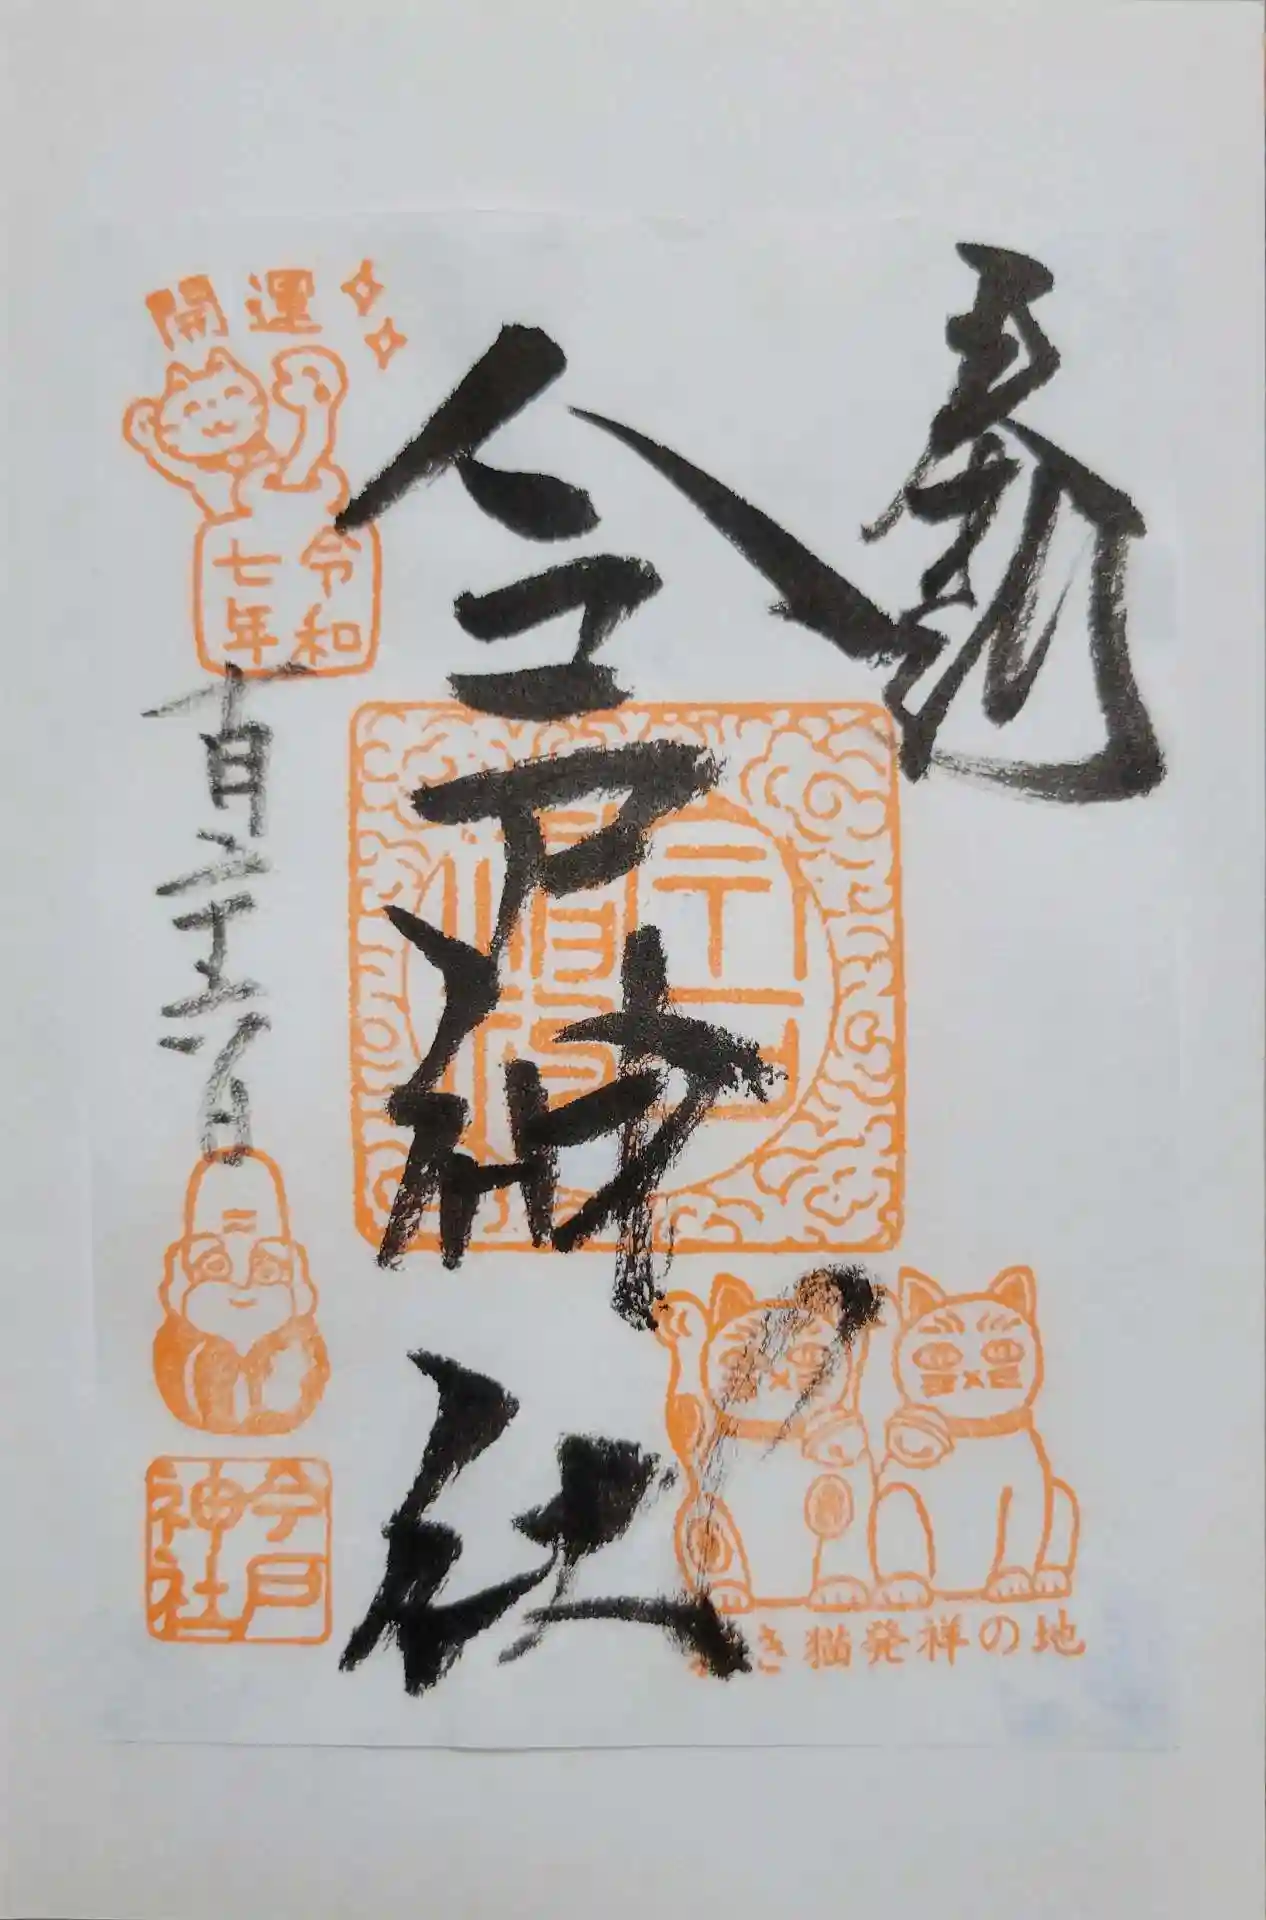 奉拝
今戸神社
開運
令和
七年
十月二十六日
今戸
神社
招き猫発祥の地